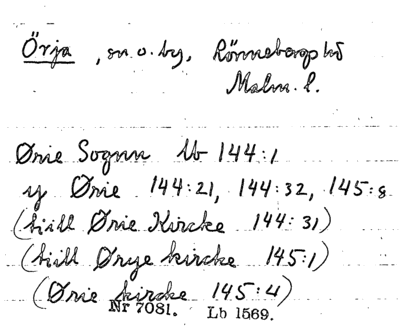 Örja, sn o. by, Rönnebergs hd
Malm. l.
Ørie Sognn Lb 144:1
y Ørie 144:21, 144:32, 145:8
(till Ørie Kircke 144:31)
(till Ørye kircke 145:1)
(Ørie kircke 145:4)
Nr 7081. Lb 1569.